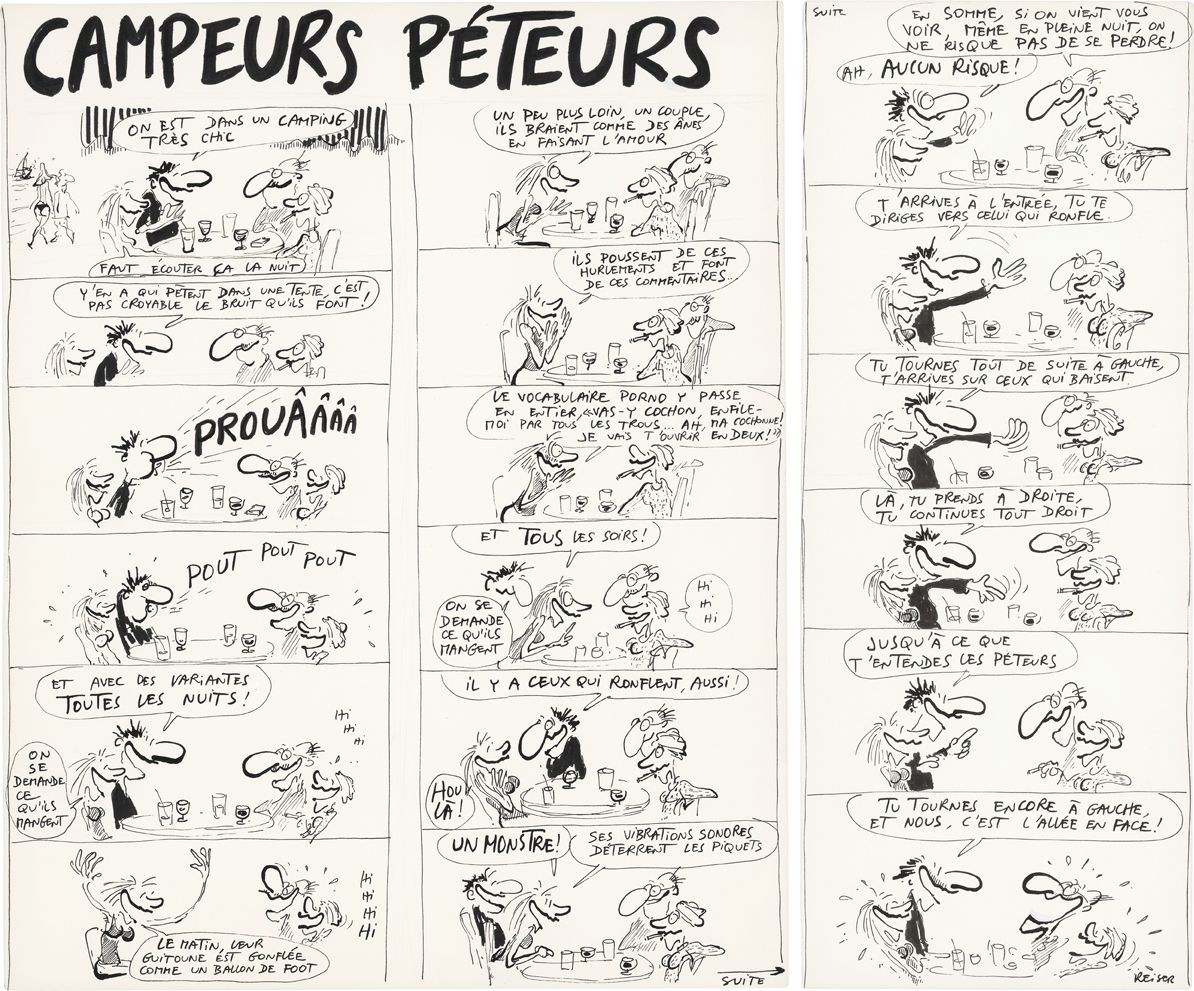 CAMPEURS PÉTEURS
ON EST DANS UN CAMPING
TRÈS CHIC
FAUT ÉCOUTER ÇA LA NUIT
Y'EN A QUI PÈTENT DANS UNE TENTE, C'EST
PAS CROYABLE LE BRUIT QU'ILS FONT !
PROUÂÂÂÂ
POUT POUT POUT
ET AVEC DES VARIANTES
TOUTES LES NUITS !
ON
SE
DEMANDE
CE
QU'ILS
MANGENT
Hi
Hi
Hi
LE MATIN, LEUR
GUITOUNE EST GONFLÉE
COMME UN BALLON DE FOOT
Hi
Hi
Hi
Hi
UN PEU PLUS LOIN, UN COUPLE,
ILS BRAIENT COMME DES ÂNES
EN FAISANT L'AMOUR
ILS POUSSENT DE CES
HURLEMENTS ET FONT
DE CES COMMENTAIRES..
LE VOCABULAIRE PORNO Y PASSE
EN ENTIER, «VAS-Y COCHON, ENFILE-
MOI PAR TOUS LES TROUS... AH, MA COCHONNE!
JE VAIS T'OUVRIR EN DEUX!»
ET TOUS LES SOIRS !
ON SE
DEMANDE
CE QU'ILS
MANGENT
Hi
Hi
Hi
IL Y A CEUX QUI RONFLENT, AUSSI !
HOU
LÀ !
UN MONSTRE !
SES VIBRATIONS SONORES
DÉTERRENT LES PIQUETS
SUITE
SUITE
EN SOMME, SI ON VIENT VOUS
VOIR, MÊME EN PLEINE NUIT, ON
NE RISQUE PAS DE SE PERDRE !
AH, AUCUN RISQUE !
T'ARRIVES À L'ENTRÉE, TU TE
DIRIGES VERS CELUI QUI RONFLE.
TU TOURNES TOUT DE SUITE À GAUCHE,
T'ARRIVES SUR CEUX QUI BAISENT
LÀ, TU PRENDS À DROITE,
TU CONTINUES TOUT DROIT
JUSQU'À CE QUE
T'ENTENDES LES PÉTEURS
TU TOURNES ENCORE À GAUCHE,
ET NOUS, C'EST L'ALLÉE EN FACE !
REISER